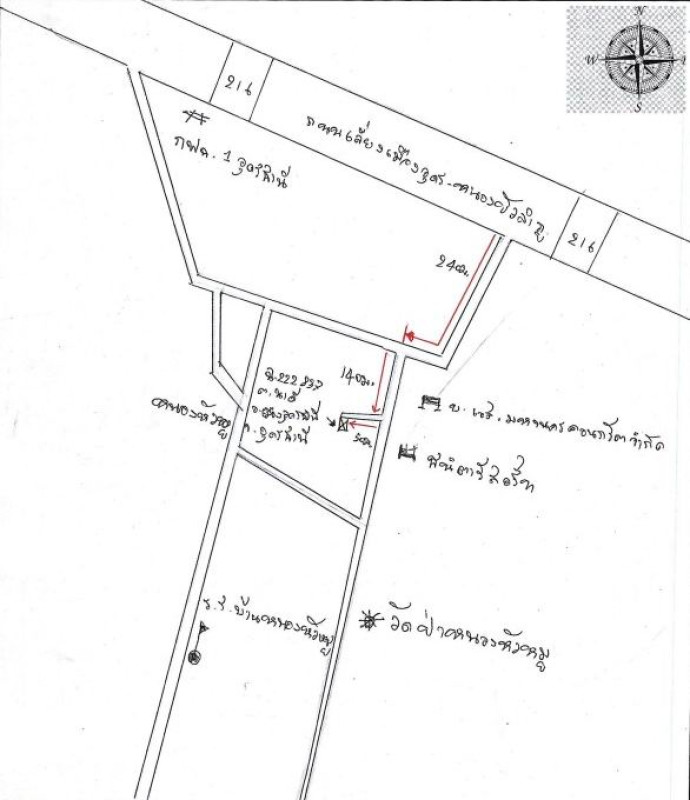 N
W
S
216
ถนนเลี่ยงเมืองอุดร-หนองบัวลำภู
216
กฟภ. 1 อุดรธานี
240ม.
140ม.
50ม.
ฉ.222 832
ต.นาดี
อ.เมืองอุดรธานี
จ. อุดรธานี
หนองหัวหมู
บ. เอส. มหานครคอนกรีต จำกัด
รีสอร์ท
ร.ร.บ้านหนองหัวหมู
วัดป่าหนองหัวหมู